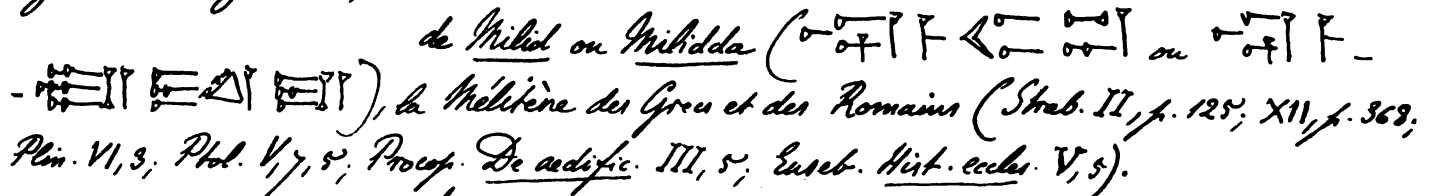 de Milid ou Milidda ( ou -
- ), la Mélitène des Grecs et des Romains (Strab. II, p. 125; XII, p. 368;
Plin. VI, 3; Ptol. V, 7, 5; Procop. De aedific. III, 5; Euseb. Hist. eccles. V, 5).